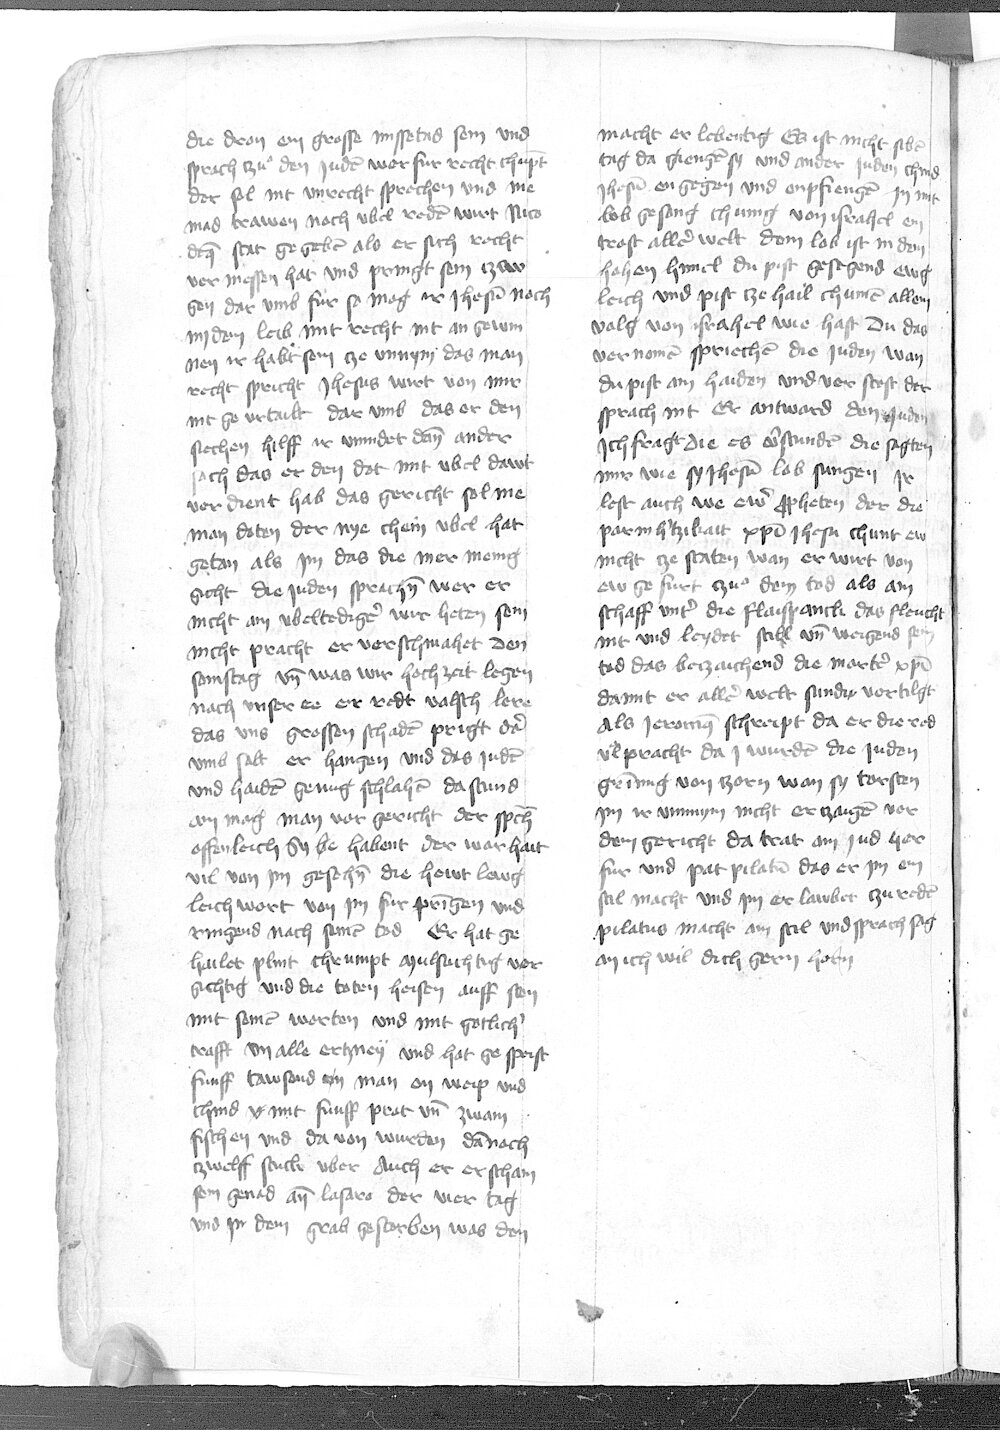 die dron ein grosse missetad sein und
sprach czuͦ den judē wer fur recht chupt
der sol nit unrecht sprechen und nie
mad trawen noch ubel redē wirt Nico
stat gegebē als er sich recht
vermessen hat und pringt sein czew
gen dar umb fur so mag ir Jhesū noch
mi dem leib mit recht nit an gewin
nen ir habt sein cze unnym das man
recht spricht Jhesus wirt von mir
nit ge urtailt dar umb das er den
siechen hilff ir vindet dan̄ ander
sach das er den dot mit ubel dawt
ver dient hab das gericht sol nie
man doten der nye chein ubel hat
getan als im das die mer menig
gicht die juden sprachn̄ wer er
nicht ain ubeltediger wir heten sein
nicht pracht er verschmahet Den
samstag un̄ was wir hochzeit legen
nach unser ee er redt valsch lere
das uns grossen schadē prigt da
umb salt er hangen und das judē
und haidē genug schlahē da stund
ain mag man vor gericht der spch̄
offenleich Sy be habent der warhait
vil von jm gesehn̄ die hewt lewg
leich wort von jm fur pringen und
ringend nach seinē tod Er hat ge
hailet plint chrumpt Auhsuchtig ver
gichtig und die toten heisen auff sten
mit seinē worten und mit gotlich
crafft un alle ertzney und hat ge speist
funff tawsend ein man on weip und
chind mit funff prat un̄ zwain
fischen und da von wurden dānoch
czwelff stuck uber Auch er erschain
sein genad an̄ lasaro der vier tag
und jn dem grab gestorben was den
macht er lebentig Es ist nicht sibē
tag da giengē sy und ander juden chind
Jhesū en gegen und enpfiengē jn mit
lob gesang chunig von israhel ein
trost aller welt dem lob ist in den
hohen himel du pist gesegend ewg
leich und pist cze hail chumē allem
volg von israhel wie hast Du das
vernomē spriechē die juden wan
du pist ain haiden und ver stest der
sprach nit Er antward den juden
Jch fragt die es verstundē die sagten
mir wie sy Jhesū lob sungen jr
lest auch we ewr propheten der die
parmhtzikait xpi Jhesu chunt ew
nicht cze staten wan er wirt von
ew ge furt czuͦ dem tod als am
schaff untr die flaispanck das fleucht
nit und leydet still un̄ weigend sein
tod das beczaichend die marter xpi
damit er aller welt sunder vertilgt
als Jeronim9 schreipt da er die red
pracht da j wurdē die juden
grīmig von zorn wan sy torsten
jm ir unnym nicht erczaigē vor
dem gericht da trat ain jud her
fur und pat pilatū das er jm ein
stil macht und jm erlawbet czu redē
pilatus macht am stil und sprach sag
an ich wil dich gern horn